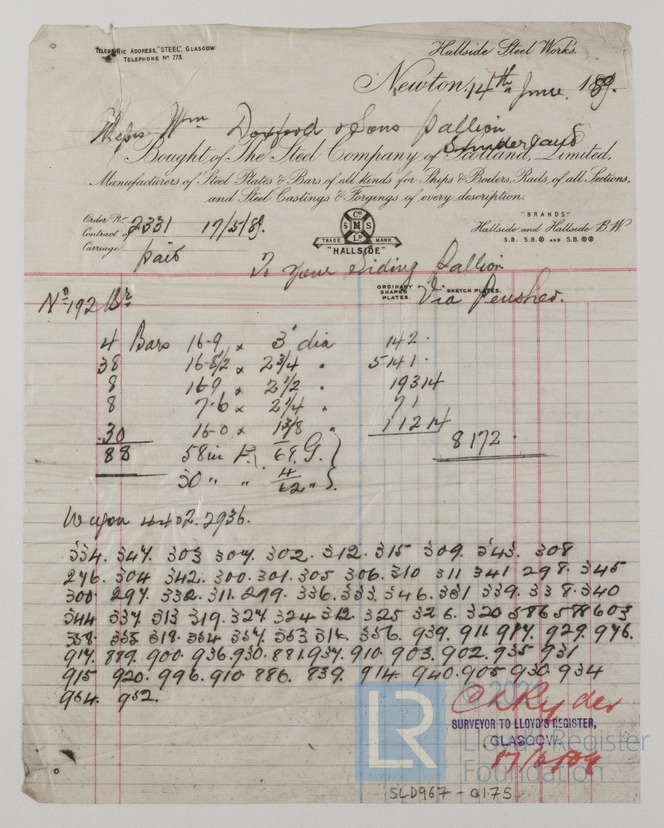 TELEGRAPHIC ADDRESS, "STEEL", GLASGOW
TELEPHONE No 773
Hallside Steel Works.
Newton, 14th June 1889.
Messrs Wm Doxford & Sons Pallion
Sunderland
Bought of The Steel Company of Scotland, Limited,
Manufacturers of Steel Plates & Bars of all kinds for Ships & Boilers, Rails of all Sections,
and Steel Castings & Forgings of every description.
Order No. 2331 17/5/89.
Contract of
Carriage paid
Co
S M S
Ld
TRADE MARK
"HALLSIDE"
"BRANDS"
Hallside and Hallside B.W
S.B. S.B.⊗ AND S.B.⊗⊗
To your Siding Pallion
ORDINARY SHAPED PLATES. SKETCH PLATES.
Via Pensher.
No 192 Br
4 Bars 16-9 x 3" dia 142.
38 16-8½ x 2¾ " 5141.
8 16-9 x 2½ " 19314
8 7-6 x 2¼ " 71
30 16-0 x 1⅜ " 11214
88 58in F. 68. G. 8172.
30 " " 4/62 " S.
Wagon 4402. 2936.
334. 347. 303 307. 302. 312. 315 309. 343. 308
276. 304 342. 300. 301. 305 306. 310 311 341 298. 345
300. 297. 332. 311. 299. 336. 333. 346. 331 339. 338. 340
344 337 313 319. 327 324 312. 325 326. 320 586 588 603
358. 353 318. 354 357. 353 316. 356. 939. 911. 917. 929. 976.
917. 889. 900. 936. 930. 881. 937. 910. 903. 902. 935 931
915 920. 996. 910. 886. 839. 914 940. 905 930. 934
954. 952.
C L Ryder
SURVEYOR TO LLOYD'S REGISTER,
GLASGOW.
17/6/89
LR
© 202
Lloyd's Register
Foundation
SLD967-0175